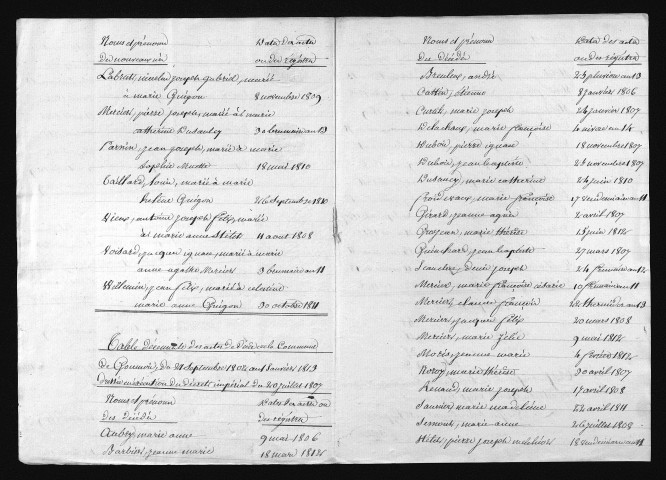 Noms et prénom Date des actes
du nouveau né ou des régistre
Labrut, nicolas joseph gabriel, marié
à marie Guigon 8 novembre 1809
Mercier, pierre joseph, marié à marie
catherine Dusausey 30 brumaire an 13
Parnin, jean joseph, marié à marie
Sophie 18 mai 1810
Taillard, louis, marié à marie
Guigon 26 septembre 1810
antoine joseph felix, marié
à marie anne 11 aout 1808
Voisard, jacques ignace, marié à marie
anne agathe Mercier 3 brumaire an 11
Willemin, jean felix, marié à celestine
marie anne Guigon 30 octobre 1811
Table décennale des actes de Décè de la Commune
de Goumois, du 24 Septembre 1802 au 1 Janvier 1813
du décret impérial du 20 juillet 1807
Noms et prénom Date des actes ou
des décédé des régistre
Aubry, marie anne 9 mai 1806
Barbier, jeanne marie 18 mars 1812
Noms et prénom Date des actes
des décédé ou des régistre
andré 25 pluviose an 13
Cattin, étienne 8 janvier 1806
marie joseph 26 janvier 1807
Delachaux, marie françoise 4 nivose an 14
Dubois, pierre ignace 18 novembre 1807
Dubois, jean baptiste 24 novembre 1807
Dusausey, marie catherine 24 juin 1810
Froidevaux, marie françoise 17 vendemiaire an 11
Girard, jeanne agnès 2 avril 1807
marie thérèse 15 juin 1812
jean baptiste 27 mars 1807
denis joseph 24 frimaire an 12
Mercier, marie françoise 10 frimaire an 11
Mercier, françois 22 thermidor an 13
Mercier, jacques felix 20 mars 1808
Mercier, marie 9 mai 1812
marie 4 février 1812
marie thérèse 30 avril 1807
Renaud, marie joseph 17 avril 1808
Saunier, marie madeleine 22 avril 1811
marie anne 26 juillet 1808
pierre joseph 18 vendemiaire an 11